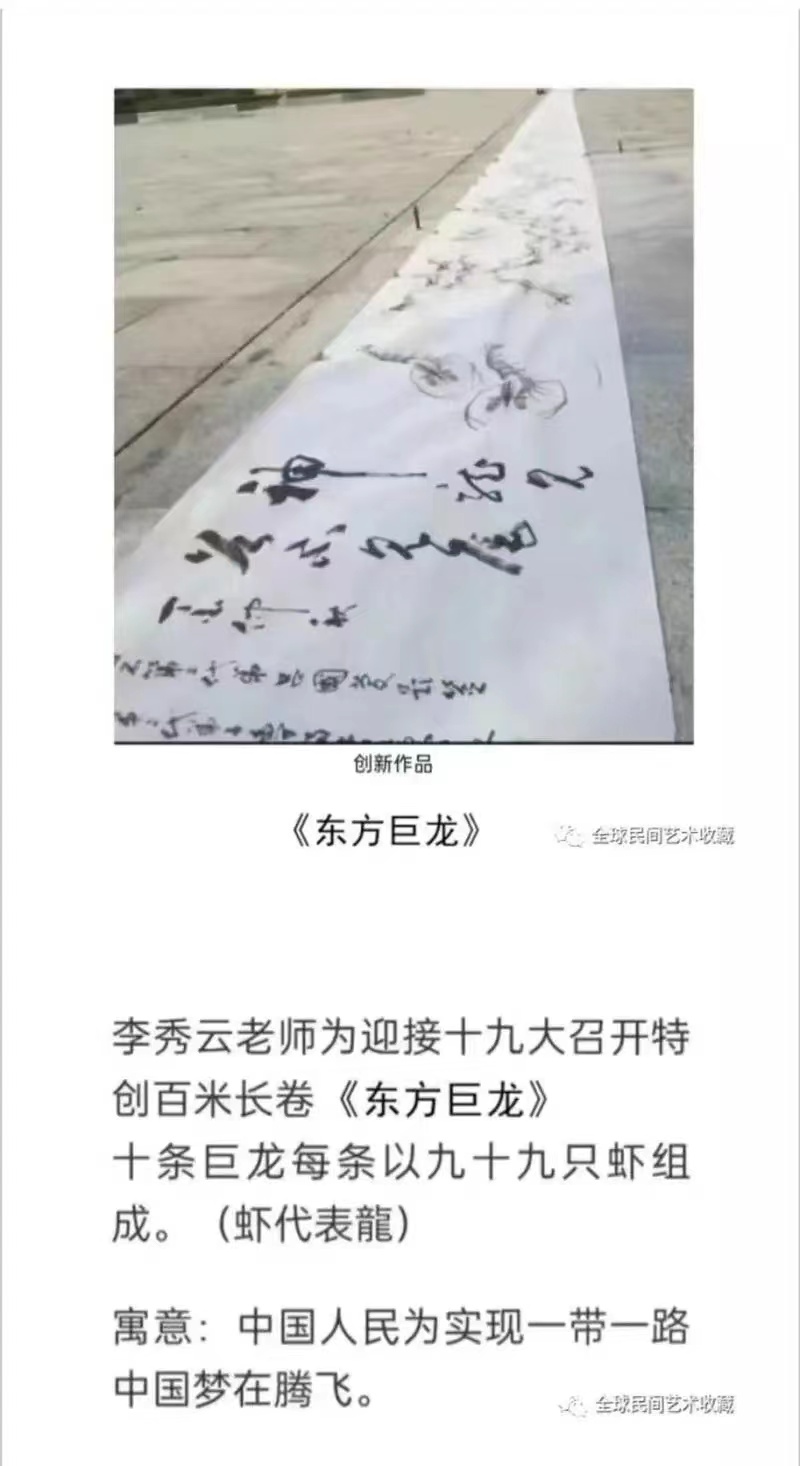 创新作品
《东方巨龙》
全球民间艺术收藏
李秀云老师为迎接十九大召开特
创百米长卷《东方巨龙》
十条巨龙每条以九十九只虾组
成。（虾代表龍）
寓意：中国人民为实现一带一路
中国梦在腾飞。
全球民间艺术收藏